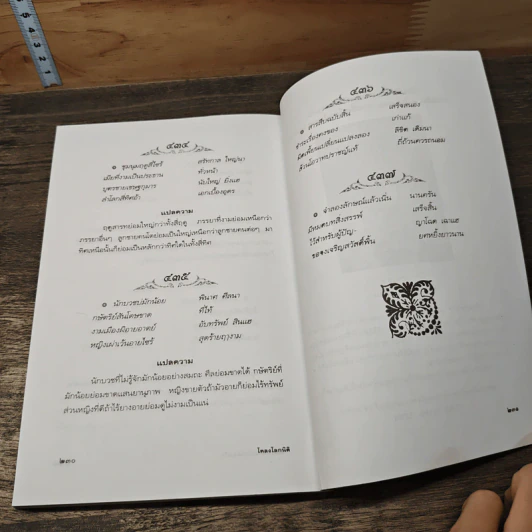 ๔๓๔
๏ ชุมนุมฤดูสี่ไซร้ สรัทกาล ใหญ่นา
เมียที่งามเป็นประธาน ทั่วหน้า
บุตรชายเชษฐกุมาร นับใหญ่ ยิ่งแฮ
ดำโลกสี่ทิศถ้า เอกเบื้องอุดร
แปลความ
ฤดูสารทย่อมใหญ่กว่าทั้งสี่ฤดู ภรรยาที่งามย่อมเหนือกว่า
ภรรยาอื่นๆ ลูกชายคนโตย่อมเป็นใหญ่เหนือกว่าลูกชายคนต่อๆ มา
ทิศเหนือนั้นก็ย่อมเป็นหลักกว่าทิศใดในทั้งสี่ทิศ
๔๓๕
๏ นักบวชบ่มักน้อย พินาศ ศีลนา
กษัตริย์สันโดษขาด ที่ให้
งามเมืองมีอายอาตย์ อับทรัพย์ สินแฮ
หญิงเผ่าเว้นอายไซร้ สุดร้ายฤๅงาม
แปลความ
นักบวชที่ไม่รู้จักมักน้อยอย่างสมถะ ศีลย่อมขาดได้ กษัตริย์ที่
มักน้อยย่อมขาดแสนยานุภาพ หญิงขายตัวถ้ามัวอายก็ย่อมไร้ทรัพย์
ส่วนหญิงที่ดีถ้าไร้ยางอายย่อมดูไม่งามเป็นแน่
๒๓๐
โคลงโลกนิติ
๔๓๖
๏ สารสืบฉบับสิ้น เสร็จสนอง
ชำระเรื่องตงของ เก่าแก้
ผิดเพี้ยนเปลี่ยนแปลงลอง ลิขิต เติมนา
ล้วนโอวาทปราชญ์แท้ ถี่ถ้วนควรถนอม
๔๓๗
๏ จำลองลักษณ์แล้วเนิ่น นานครัน
มีหมดบทสิ่งสรรพ์ เสร็จสิ้น
ไว้สำหรับผู้ปัญ- ญาโฉด เฉาแฮ
ของเจริญสวัสดิ์พ้น ยศหยิ่งยาวนาน
๒๓๑